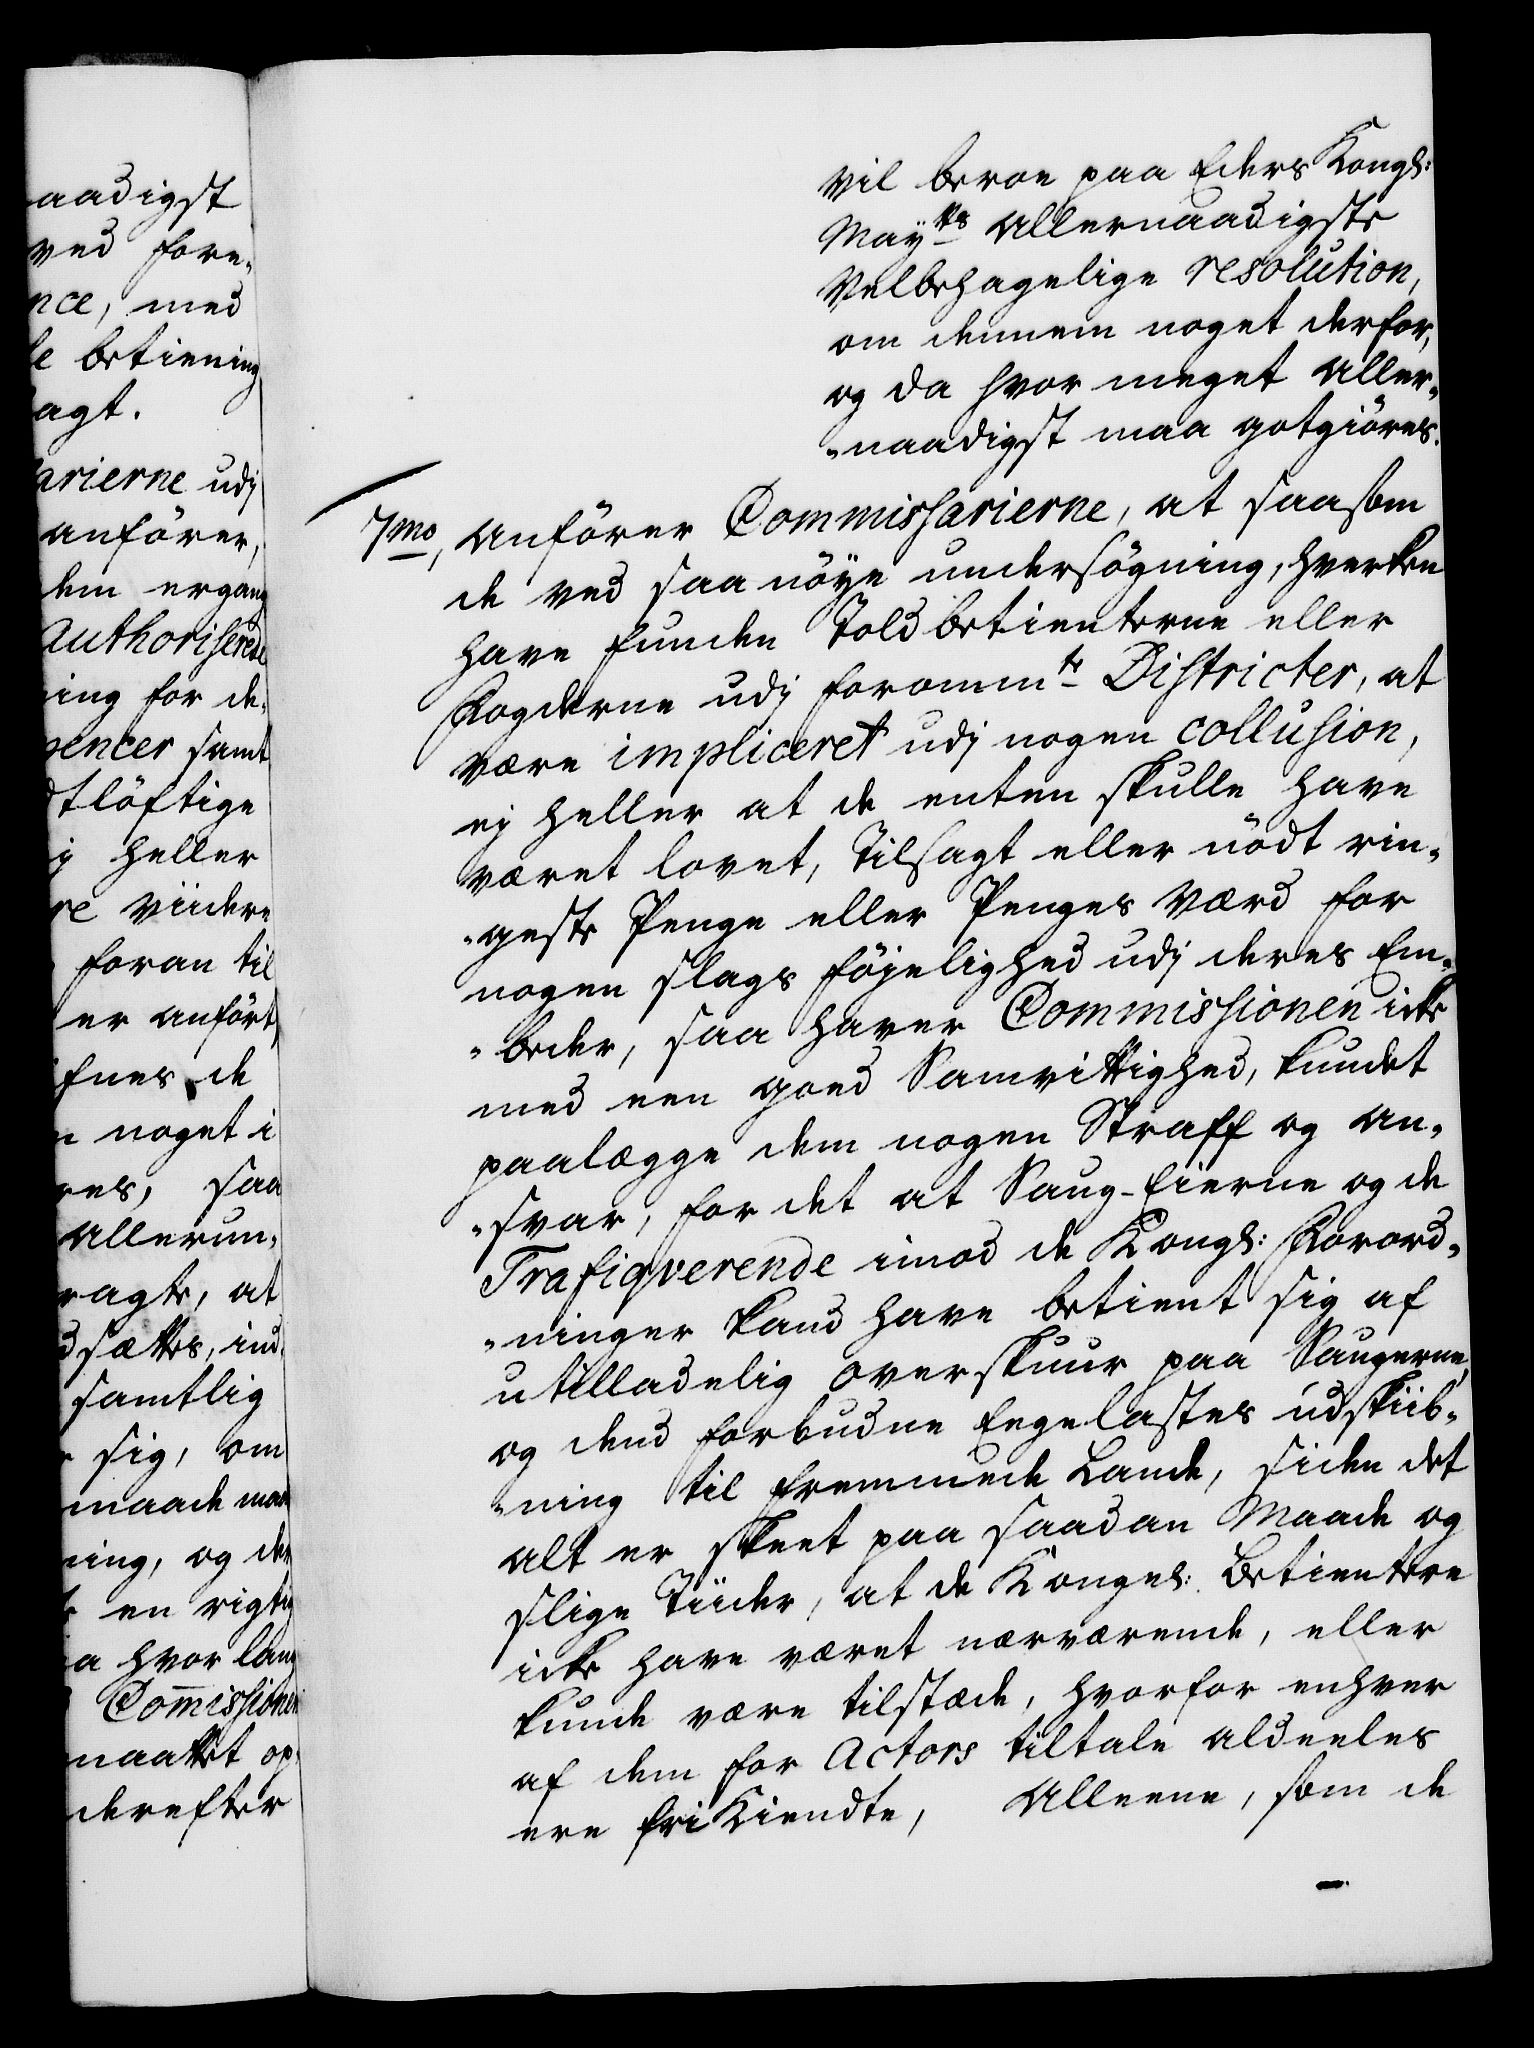 aadigst
ved fore-
nce, med
le betiening
agt.
arierne udj
anförer,
dem ergang
Authoriserede
ning for de-
pencer samt
dtlöftige
j heller
re viidere
foran til
er anfört,
fnes de
n noget i
res, saa
allerun-
ragte, at
d sættes, ind-
samtlig
sig, om
maade maa
ning, og der
en rigtig
a hvor lang
Com̄issionen
maattet op-
derefter
vil beroe paa Eders Kongl:
Mayts Allernaadigste
Velbehagelige resolution,
om dennem noget derfor,
og da hvor meget Aller-
-naadigst maa gotgiöres.
7mo, anförer Commissarierne, at saasom
de ved saa nöye undersögning, hverken
have funden Toldbetienterne eller
Fogderne udj forommte Districter, at
være impliceret udj nogen collusion,
ej heller at de enten skulle have
været lovet, tilsagt eller nödt rin-
-geste Penge eller Penges værd for
nogen slags föjelighed udj deres Em-
-beder, saa haver Commissionen icke
med een goed Samvittighed, kundet
paalægge dem nogen Straff og an-
-svar, for det at Saug-Eierne og de
Trafiqverende imod de Kongl: Forord-
-ninger kand have betient sig af
utilladelig overskuur paa Saugerne,
og dend forbudne Eegelastes udskib-
-ning til fremmede Lande, siden det
alt er skeet paa saadan Maade og
slige Tiider, at de Kongel: Betientere
icke have været nærværende, eller
kunde være tilstæde, hvorfor enhver
af dem for Actors tiltale aldeeles
ere friKiendte, Alleene, som de